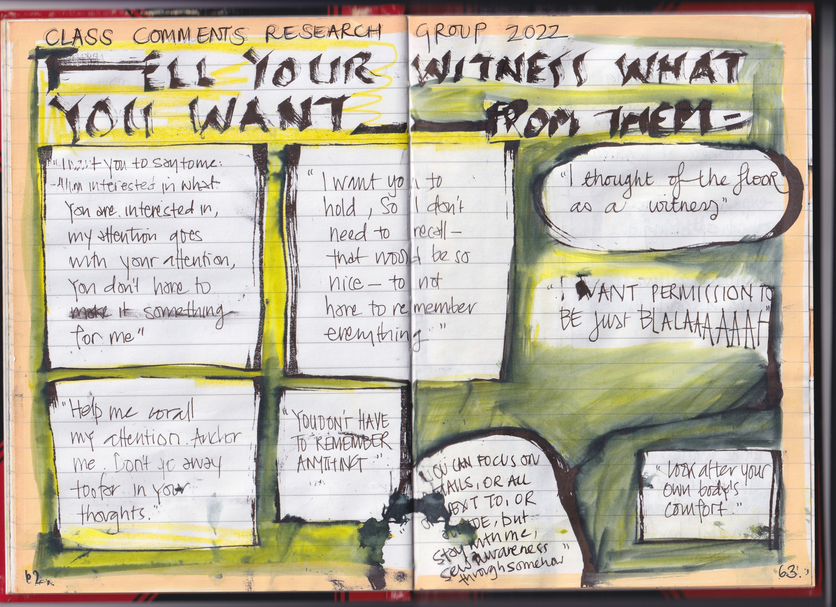 CLASS COMMENTS RESEARCH GROUP 2022
TELL YOUR WITNESS WHAT
YOU WANT FROM THEM =
you to say to me:
interested in what
you are interested in,
my attention goes
with your attention,
you don't have to
make it something
for me"
"I want you to
hold, so I don't
need to recall –
that would be so
nice – to not
have to remember
everything"
"I thought of the floor
as a witness"
"I WANT PERMISSION TO
BE just BLALAAAAAAH"
"Help me corall
my attention. Anchor
me. Don't go away
too far in your
thoughts."
"YOU DON'T HAVE
TO REMEMBER
ANYTHING."
YOU CAN FOCUS ON
TAILS, OR ALL
TO, OR
, but
stay with me,
awareness
through somehow"
"Look after your
own body's
comfort."
62
63